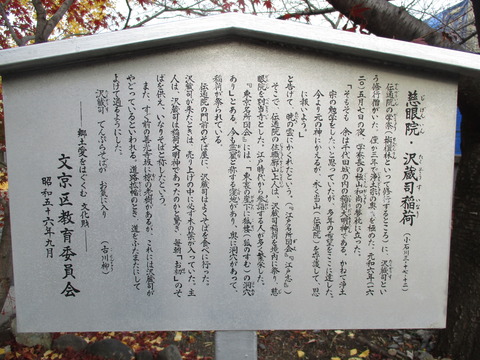 慈眼院・沢蔵司稲荷 (小石川三ー十七ー十二)
伝通院の学寮(栴檀林といって修行するところ)に、沢蔵司とい
う修行僧がいた。僅か三年で浄土宗の奥義を極めた。元和六年(一六
二〇)五月七日の夜、学寮長の極山和尚の夢枕に立った。
「そもそも、余は千代田城の内の稲荷大明神である。かねて浄土
宗の勉学をしたいと思っていたが、多年の希望をここに達した。
今より元の神にかえるが、永く当山(伝通院)を守護して、恩
に報いよう。」
と告げて、暁の雲にかくれたという。(『江戸名所図会』『江戸志』)
そこで、伝通院の住職廓山上人は、沢蔵司稲荷を境内に祭り、慈
眼院を別当寺とした。江戸時代から参詣する人が多く繁栄した。
『東京名所図会』には、「東京の崖下に狐棲(狐のすむ)の洞穴
あり」とある。今も霊窟と称する窪地があり、奥に洞穴があって、
稲荷が祭られている。
伝通院の門前のそば屋に、沢蔵司はよくそばを食べに行った。
沢蔵司が来たときは、売り上げの中に必ず木の葉が入っていた。主
人は、沢蔵司は稲荷大明神であったのかと驚き、毎朝「お初」のそ
ばを供え、いなりそばと称したという。
また、すぐ前の善光寺坂に椋の老樹があるが、これには沢蔵司が
やどっているといわれる。道路拡幅のとき、道をふたまたにして
よけて通るようにした。
沢蔵司 てんぷらそばが お気に入り (古川柳)
――郷土愛をはぐくむ文化財――
文京区教育委員会
昭和五十六年九月